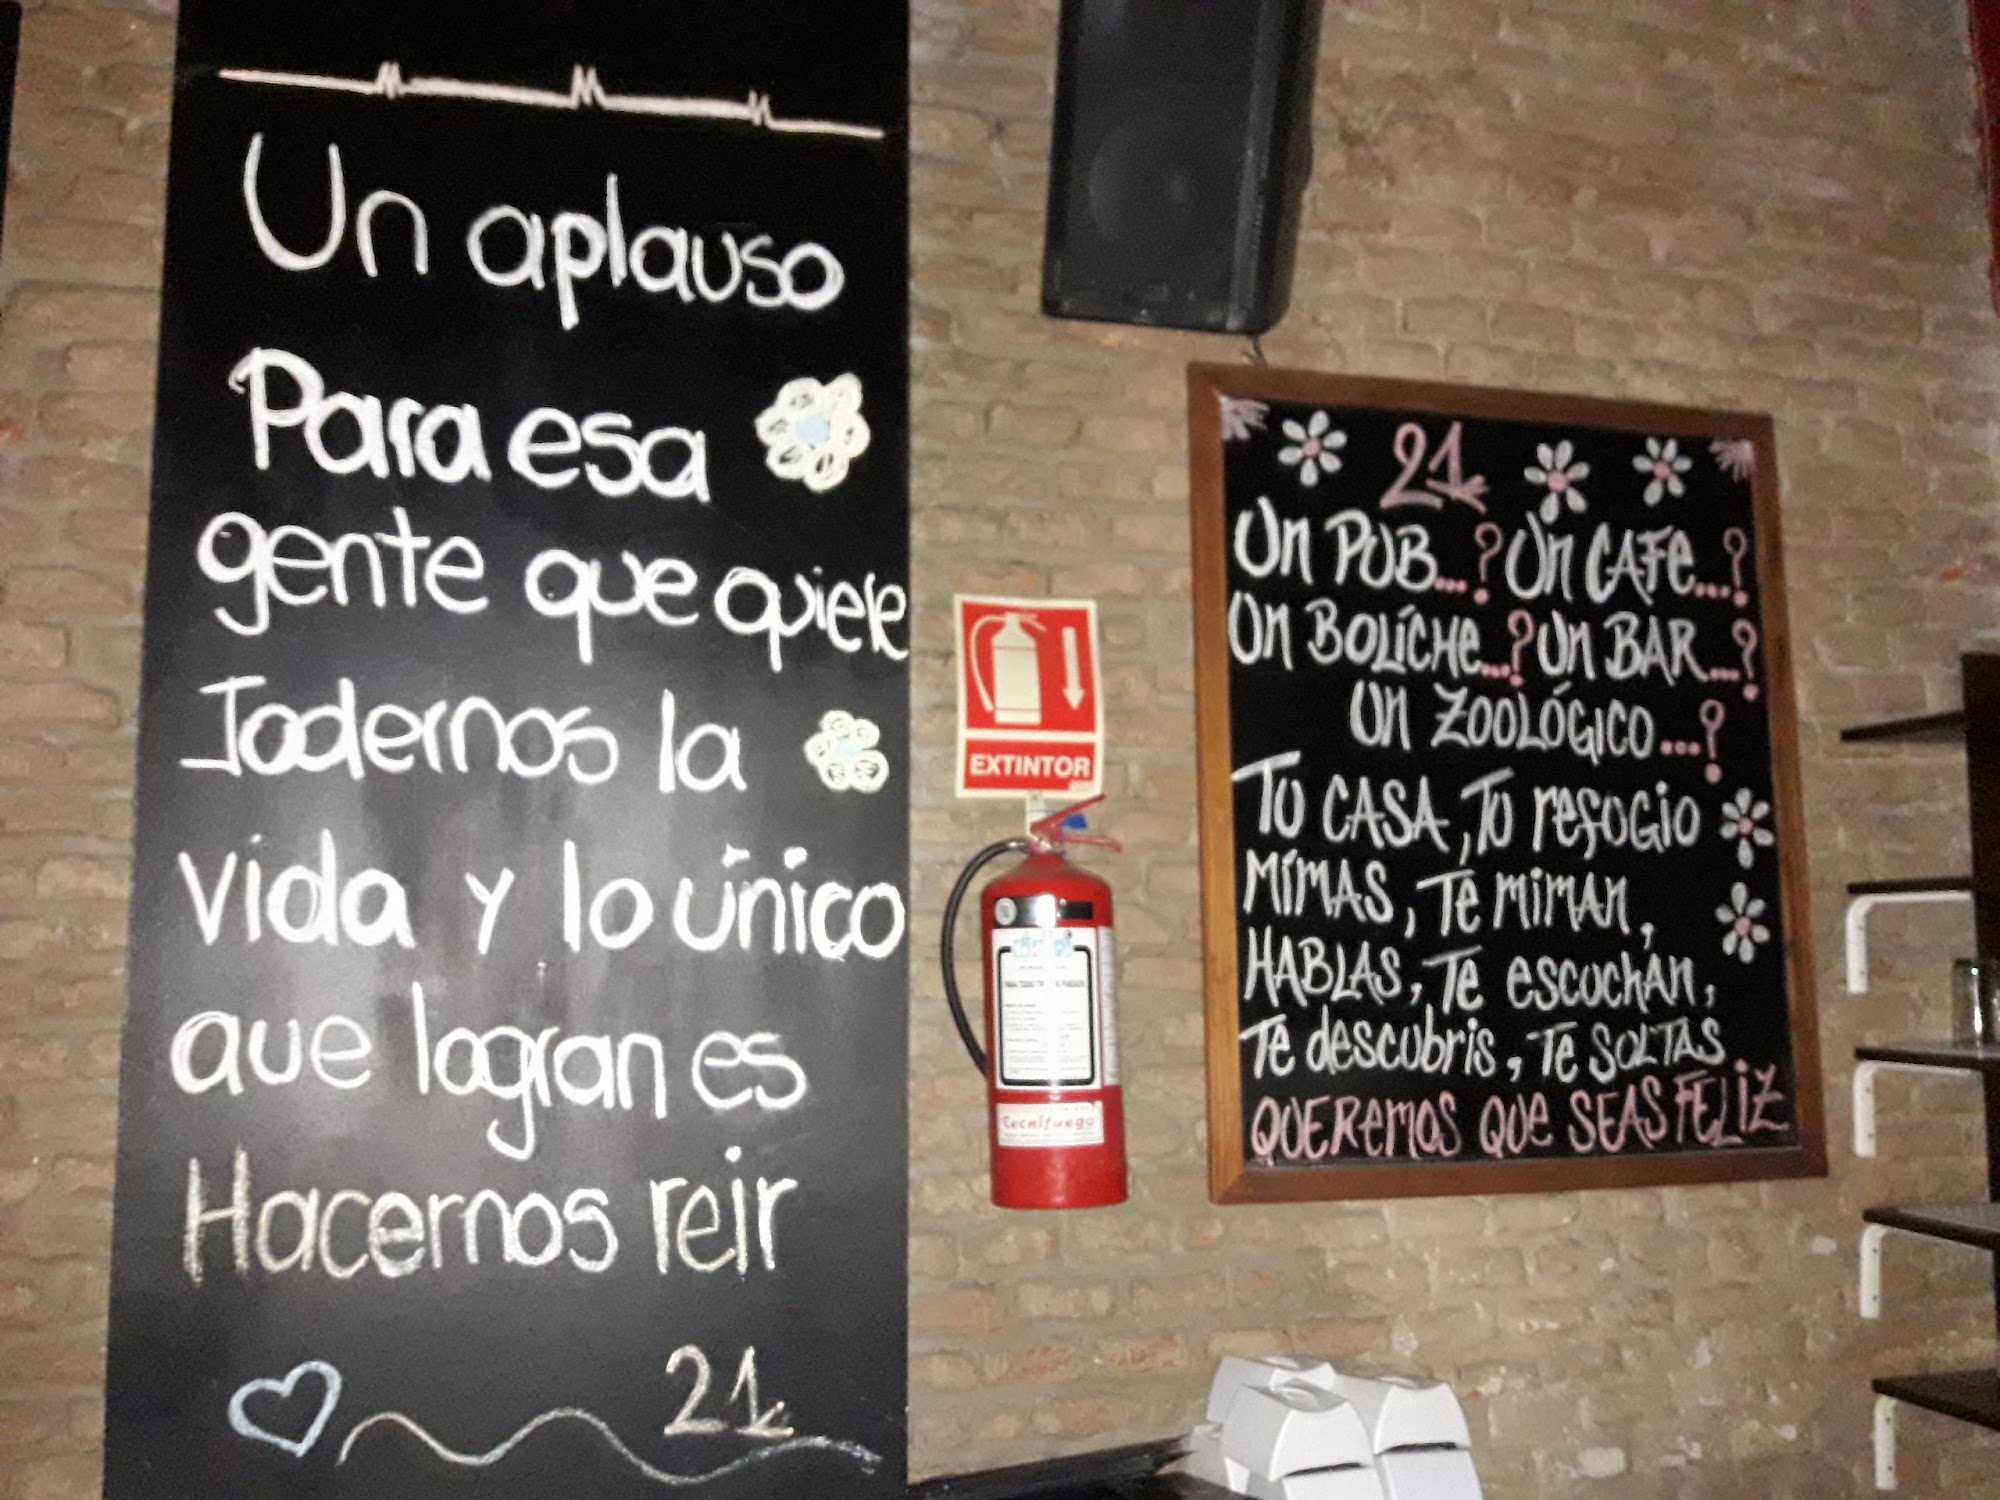 Un aplauso
Para esa
gente que quiere
Jodernos la
vida y lo único
que logran es
Hacernos reir
21
EXTINTOR
tecnifuego
21
Un PUB...? Un CAFE...?
Un BOLÍCHE...? Un BAR...?
Un ZOOLÓGICO...?
TU CASA, TU refUGIO
MIMAS, Te MIMAN,
HABLAS, Te escUchAN,
Te descUbris, Te SOLTAS
QUeRemos QUe SEAS FELIZ